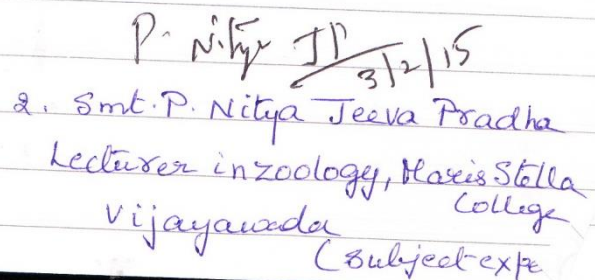 P. Nitya JP
3/2/15
2. Smt. P. Nitya Jeeva Pradha
Lecturer in zoology, Maris Stella
College
Vijayawada
(subject-expe